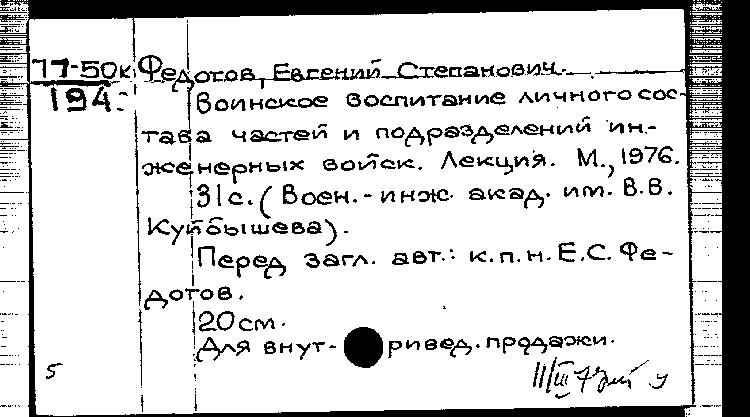 77-50к Федотов, Евгений Степанович.
194
Воинское воспитание личного сос-
тава частей и подразделений ин-
женерных войск. Лекция. М., 1976.
31с. (Воен.-инж. акад. им. В.В.
Куйбышева).
Перед загл. авт.: к.п.н. Е.С. Фе-
дотов.
20см.
Для внут- ривед. продажи.
5